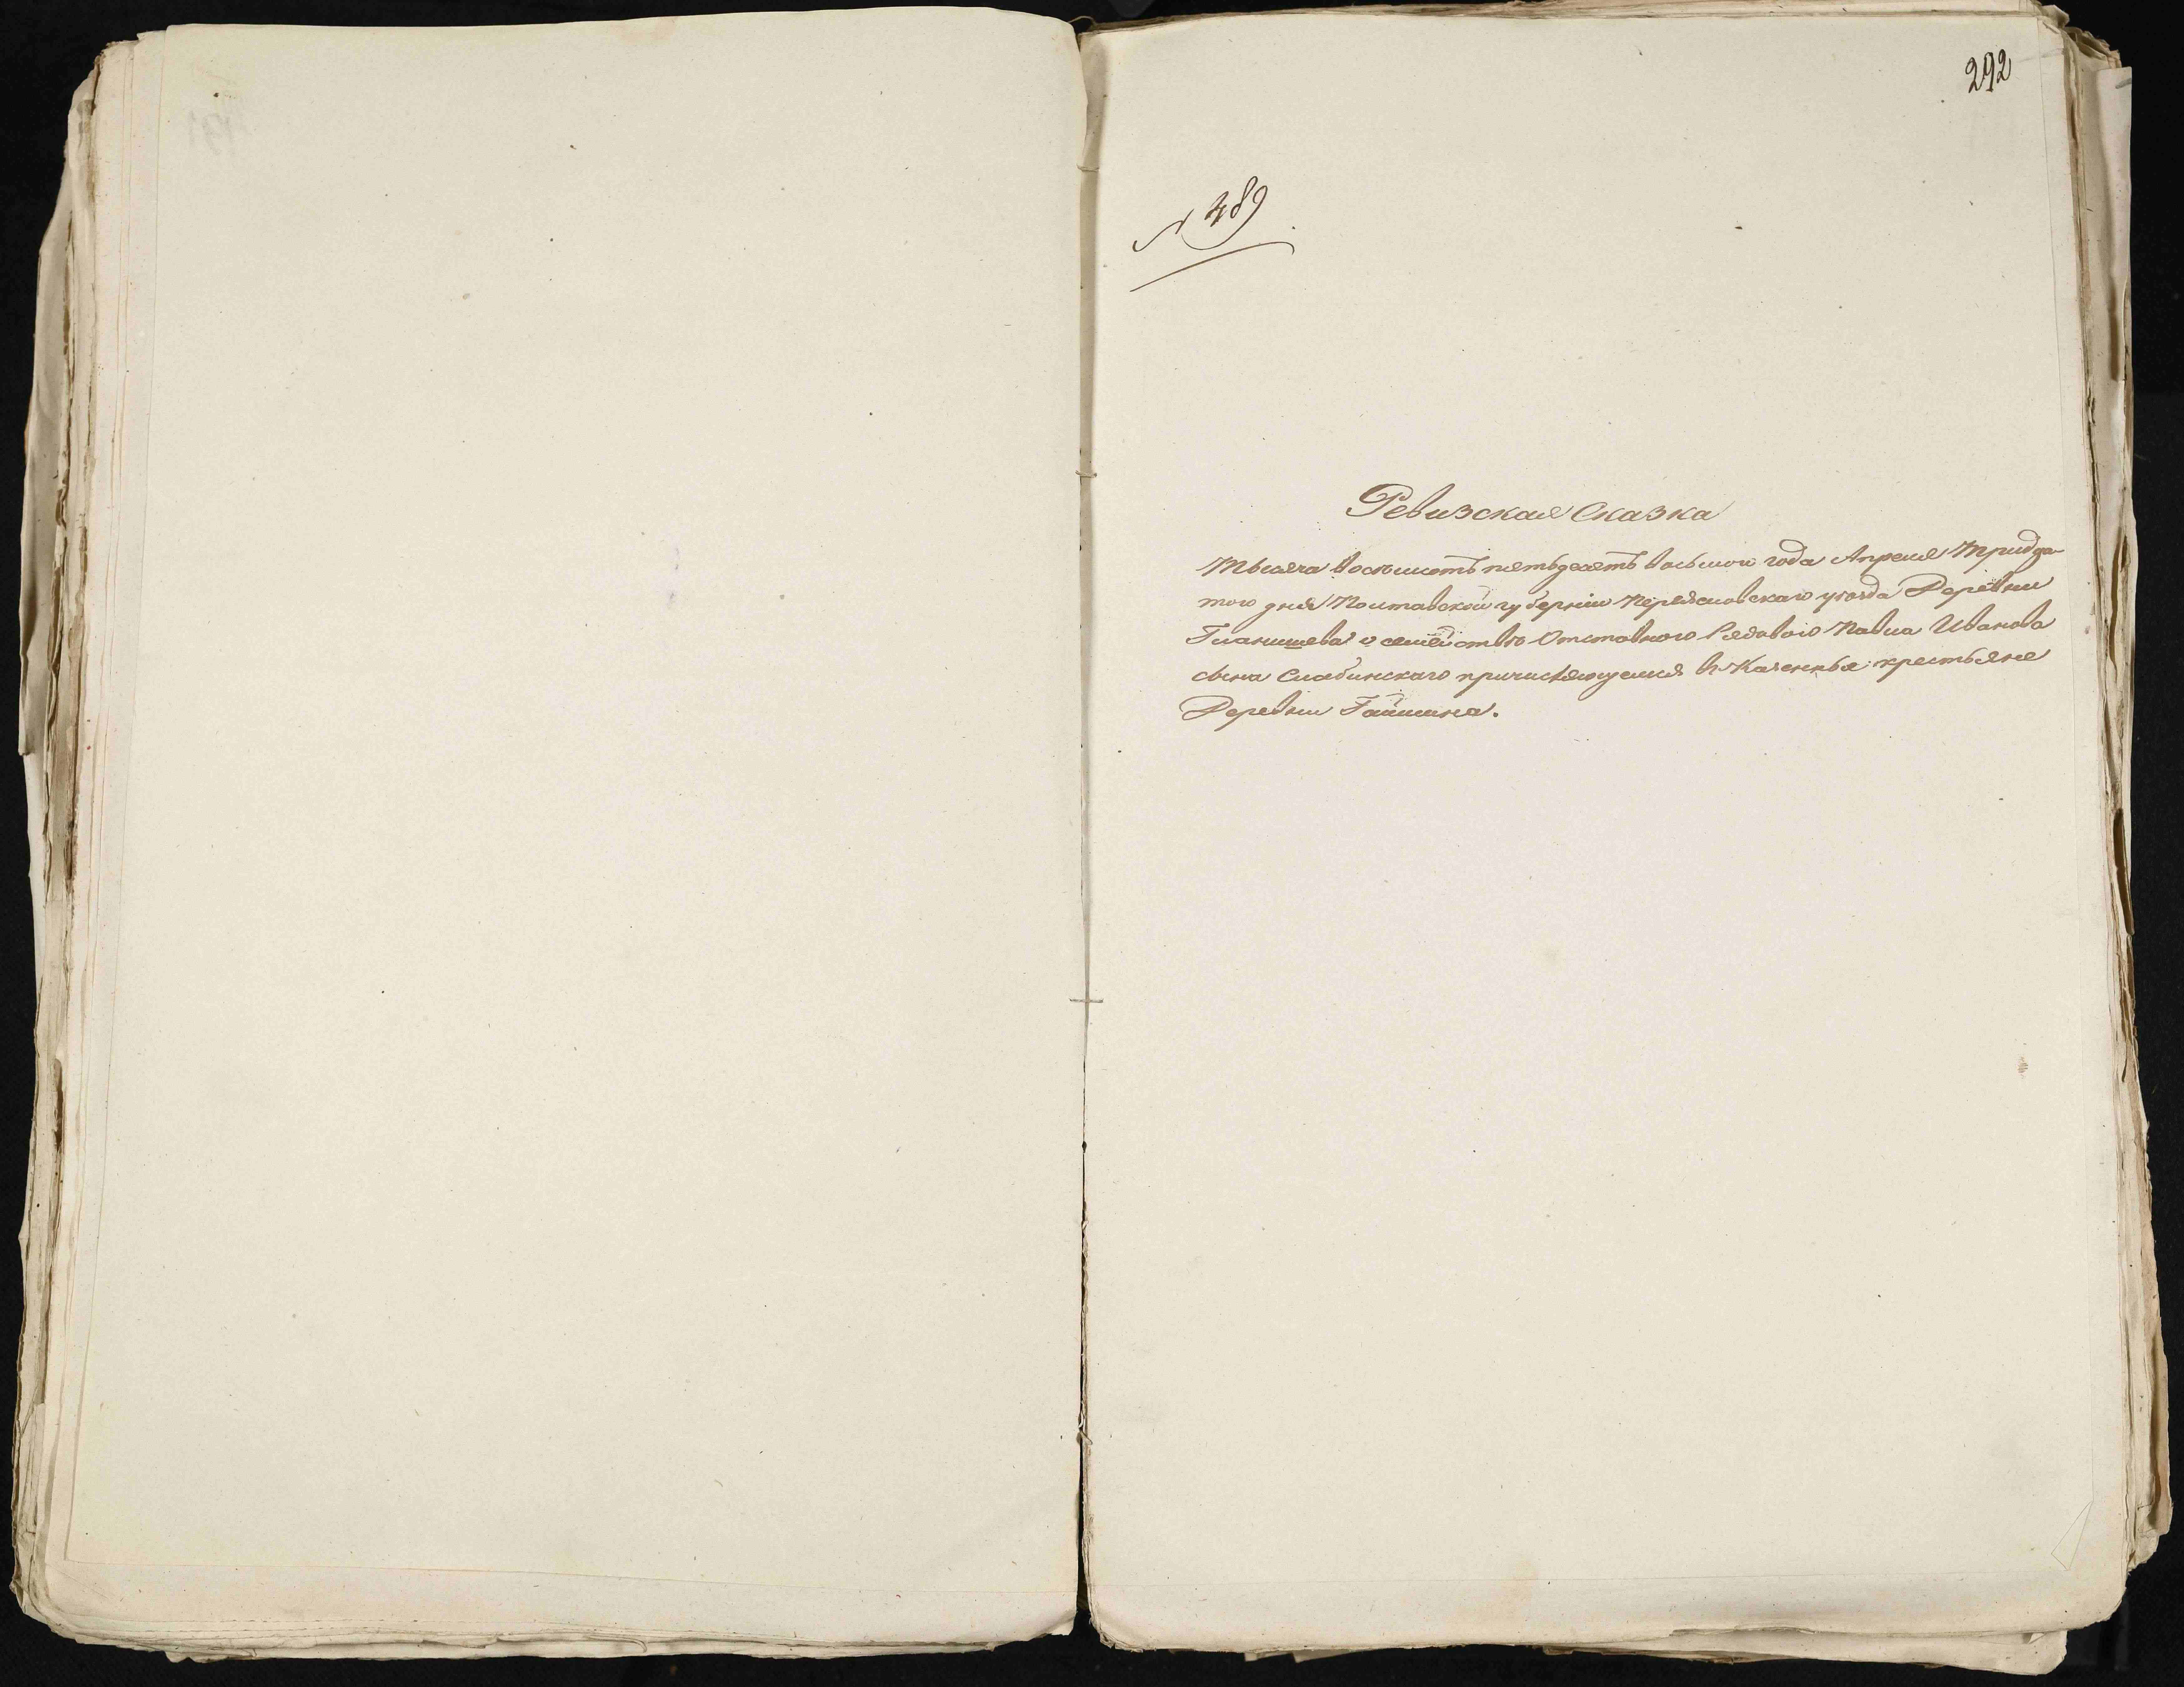 292
№ 489
Ревизская Сказка
Тысяча восемьсотъ пятьдесятъ восьмого года Апреля Тридца-
того дня Полтавской губерніи Переясловскаго уѣзда Деревни
о семействѣ Отставного Рядового Павла Иванова
сына Слабинскаго причисляющемся въ Казенные крестьяне
Деревни Гайшина.